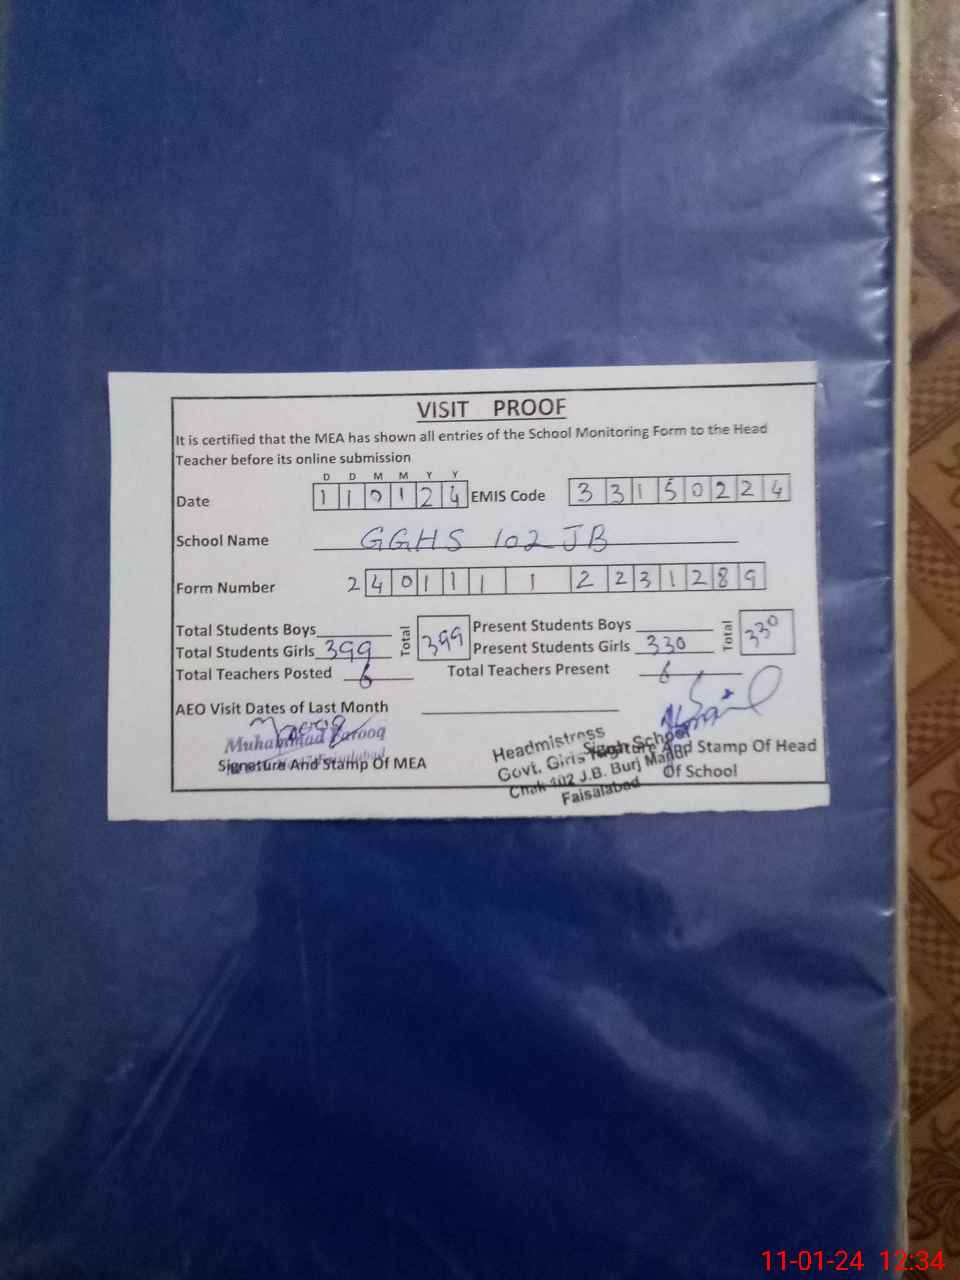 VISIT PROOF
It is certified that the MEA has shown all entries of the School Monitoring Form to the Head
Teacher before its online submission
D D M M Y Y
Date 1 1 0 1 2 4 EMIS Code 3 3 1 5 0 2 2 4
School Name GGHS 102 JB
Form Number 2 4 0 1 1 1 1 2 2 3 1 2 8 9
Total Students Boys Total 399 Present Students Boys Total 330
Total Students Girls 399 Present Students Girls 330
Total Teachers Posted 6 Total Teachers Present 6
AEO Visit Dates of Last Month
Muhammad Farooq
Signature And Stamp Of MEA
Headmistress
Govt. Girls High School
Chak 102 J.B. Burj Mandi
Faisalabad
Signature And Stamp Of Head
Of School
11-01-24 12:34